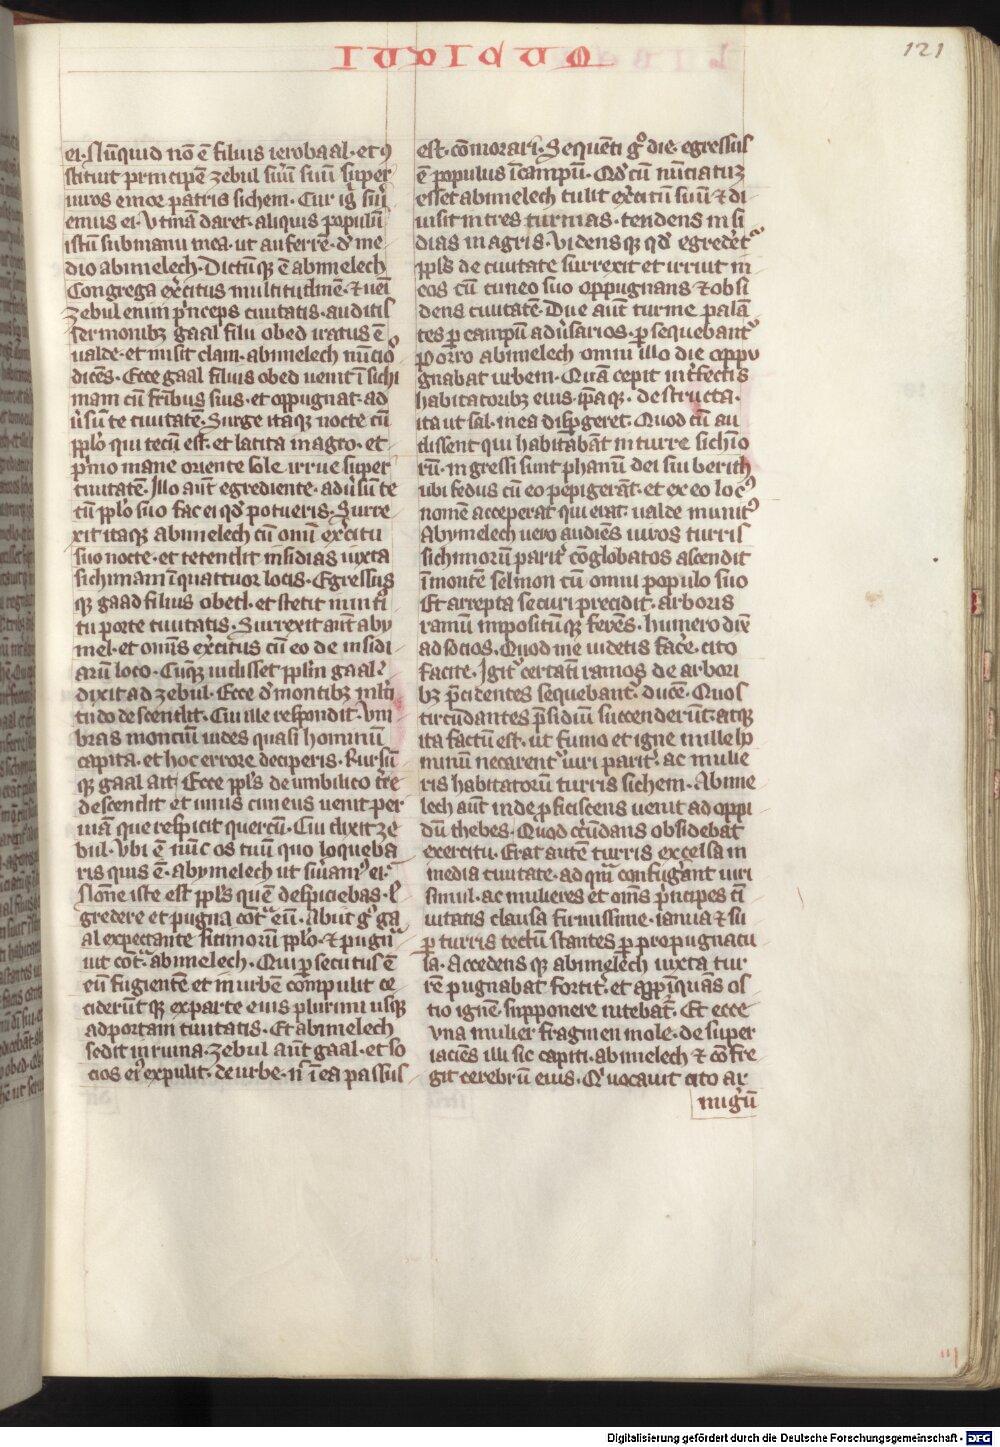 IUDICUM
121
ei. Nūquid nō ē filius ierobaal. et ꝯ
stituit principē zebul suū suū super
uiros emor patris sichem. Cur igʳ suiʳ
emus ei. Vtinā daret. aliquis populū
istū sub manu mea. ut auferrē. dʾ me
dio abimelech. Dictūqꝫ ē abimelech
Congrega exʾcitus multitudinē. ⁊ uei
zebul enim pʾnceps ciuitatis. auditis
sermonibꝫ gaal filii obed iratus ē
ualde. et misit clam. abimelech nūcioˢ
dicēs. Ecce gaal filius obed uenit ī sichi
mam cū fr̄ibus suis. et oppugnat. ad
uʾsum te ciuitatē. Surge itaqꝫ nocte cū
pp̄lo qui tecū est. et latita in agro. et
pʾmo mane oriente sole irrue super
ciuitatē. Illo aūt egrediente. aduʾsū te
cū pp̄lo suo fac ei qd̄ potueris. Surre
xit itaqꝫ abimelech cū omī exʾcitu
suo nocte. et tetendit insidias iuxta
sichimam ī quattuor locis. Egressus
qꝫ gaad filius obed. et stetit in inti
tu porte ciuitatis. Surrexit aūt aby
mel. et om̄s exʾcitus cū eo de insidi
arū loco. Cūqꝫ uidisset pp̄lm gaal.
dixit ad zebul. Ecce dʾ montibꝫ ml̄ti
tudo descendit. Cui ille respondit. Vm
bras moncium uides quasi hominū
capita. et hoc errore deciperis. Rursū
qꝫ gaal ait. Ecce pp̄ls de umbilico tʾre
descendit et unus cuneus uenit per
uiā que respicit quercū. Cui dixit ze
bul. Vbi ē nūc os tuū quo loqueba
ris quis ē. abymelech ut suiamꝰ ei.
Nōne iste est pp̄ls quē despiciebas. E
gredere et pugna cotᵃ eū. Abiit gº ga
al expectante sicimorū pp̄lo. ⁊ pugna
uit cotᵃ abimelech. Qui ꝑsecutus ē
eū fugientē et in urbē compulit ce
ciderūtqꝫ ex parte eius plurimi usqꝫ
ad portam ciuitatis. Et abimelech
sedit in ruina. zebul aūt gaal. et so
cios eiꝰ expulit. de urbe. nʾ ī ea passus
est. cōmorari. Sequēti gº die. egressus
ē populus ī campū. Qd̄ cū nūciatuꝫ
esset abimelech tulit exʾcitū suū ⁊ di
uisit in tres turmas. tendens insi
dias in agris. Vidensqꝫ qd̄ egredetʳ
pp̄ls de ciuitate surrexit et irruit in
eos cū cuneo suo oppugnans ⁊ obsi
dens ciuitatē. Due aūt turme palā
tes ꝑ campū aduʾsarios. ꝑsequebantʳ
Porro abimelech omni illo die oppu
gnabat urbem. Quā cepit intʾfectis
habitatoribꝫ eius. ipaqꝫ. destructa.
ita ut sal. in ea dispʾgeret. Quod cū au
dissent qui habitabāt in turre sichīo
rū. ingressi sunt phanū dei sui berith
ubi fedus cū eo pepigerāt. et ex eo locꝰ
nomē acceperat qui erat. ualde munitꝰ
Abymelech uero audiēs uiros turris
sichimorū paritʾ cōglobatos ascendit
ī montē selmon cū omni populo suo
Et arrepta securi precidit. arboris
ramū impositūqꝫ ferēs. humero dix̄
ad socios. Quod me uidetis facʾe. cito
facite. Igitʳ certatī ramos de arbori
bꝫ pʾcidentes sequebantʳ. ducē. Quos
circūdantes pʾsidiū succenderūt. atqꝫ
ita factū est. ut fumo et igne mille ho
minū necarentʳ uiri paritʾ. ac mulie
ris habitatorū turris sichem. Abime
lech aūt inde ꝓficiscens uenit ad oppi
dū thebes. Quod circūdans obsidebat
exercitu. Erat autē turris excelsa in
media ciuitate. ad quā confugerant uiri
simul. ac mulieres et om̄s pʾncipes ci
uitatis clausa firmissime. ianua ⁊ su
ꝑ turris tectū stantes ꝑ propugnacu
la. Accedensqꝫ abimelech iuxta tur
rē pugnabat fortitʾ. et appʾīquās os
tio ignē supponere nitebatʳ. Et ecce
vna mulier fragmen mole. desuper
iaciēs illisit capiti. abimelech ⁊ cōfre
git cerebrū eius. Qʾ uocauit cito ar
migʾū
Digitalisierung gefördert durch die Deutsche Forschungsgemeinschaft - DFG